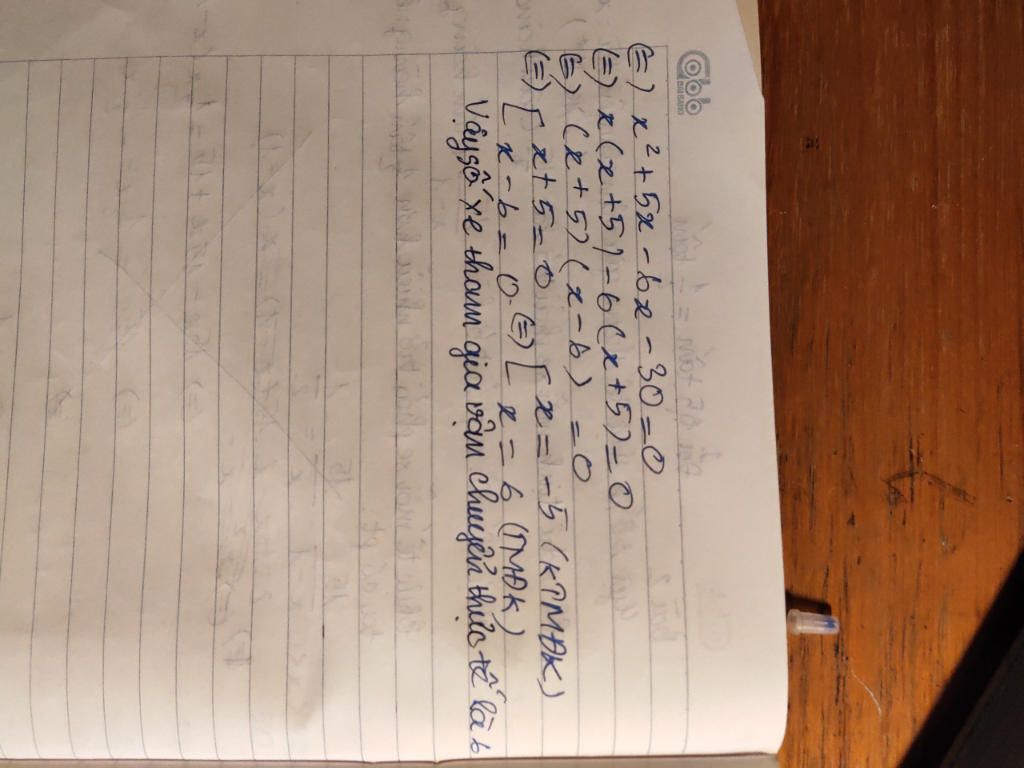 (=) x² + 5x - 6x - 30 = 0
(=) x(x+5) - 6(x+5) = 0
(=) (x+5)(x-6) = 0
(=) [ x+5 = 0 (=) [ x = -5 (KTMĐK)
[ x - 6 = 0 [ x = 6 (TMĐK)
Vậy số xe tham gia vận chuyển thực tế là 6